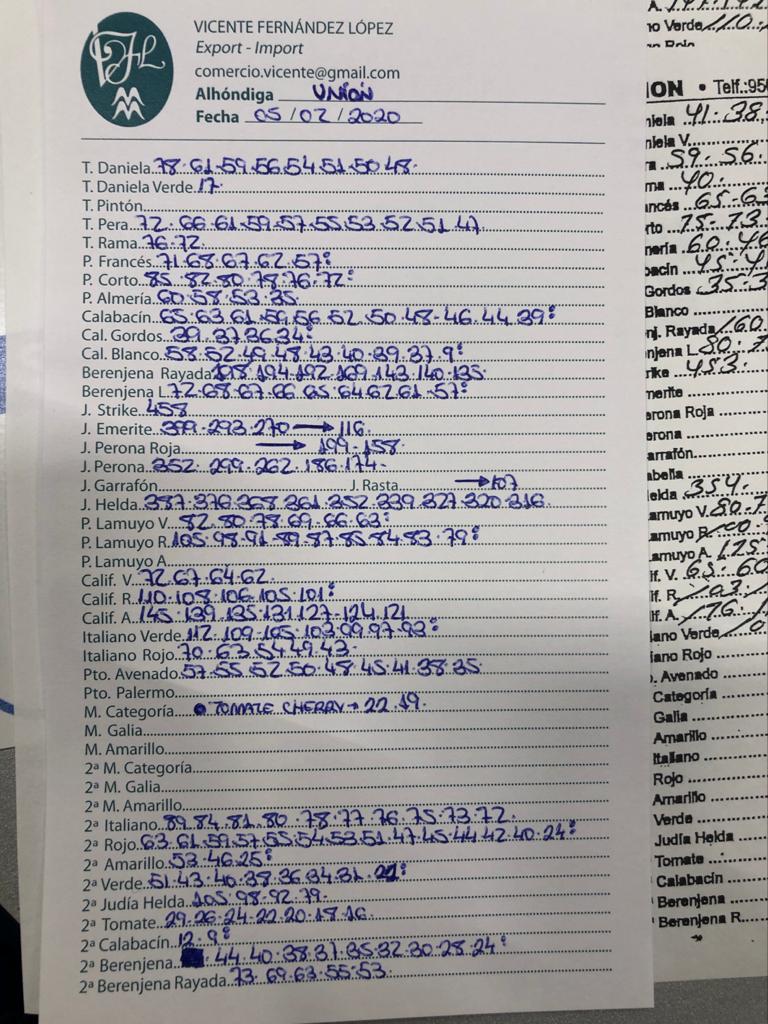 VICENTE FERNÁNDEZ LÓPEZ
Export - Import
comercio.vicente@gmail.com
Alhóndiga UNIÓN
Fecha 05/02/2020
T. Daniela 78.61.59.56.54.51.50.48.
T. Daniela Verde 17.
T. Pintón
T. Pera 72.66.61.59.57.55.53.52.51.47
T. Rama 76.72.
P. Francés 71.68.67.62.57:
P. Corto 85.82.80.78.76.72:
P. Almería 60.58.53.35.
Calabacín 65.63.61.59.56.52.50.48-46.44.39:
Cal. Gordos 39.37.36.34:
Cal. Blanco 58.52.49.48.43.40.39.37.9:
Berenjena Rayada 194.192.169.143.140.135
Berenjena L. 72.68.67.66.65.64.62.61.57:
J. Strike 458
J. Emerite 399.293.270 → 116.
J. Perona Roja → 199-158
J. Perona 352.299.262.186.174-
J. Garrafón J. Rasta → 107
J. Helda 387.376.368.361.352.339.327.320.316.
P. Lamuyo V. 82.80.78.69.66.63:
P. Lamuyo R. 105.98.91.89.87.85.84.83.79:
P. Lamuyo A.
Calif. V. 72.67.64.62.
Calif. R. 110.108.106.105.101:
Calif. A. 145.139.135.131.127-124.121
Italiano Verde 112.109.105.103.99.97.93:
Italiano Rojo 70.63.54.49.43.
Pto. Avenado 57.55.52.50.48.45.41.38.35
Pto. Palermo
M. Categoría • TOMATE CHERRY → 22.19.
M. Galia
M. Amarillo
2ª M. Categoría
2ª M. Galia
2ª M. Amarillo
2ª Italiano 89.84.81.80.78.77.76.75.73.72.
2ª Rojo 63.61.59.57.55.54.53.51.47.45.44.42.40.24:
2ª Amarillo 53.46.25:
2ª Verde 51.43.40.38.36.34.31.
2ª Judía Helda 105.98.92.79.
2ª Tomate 29.26.24.22.20.18.16.
2ª Calabacín 12.9:
2ª Berenjena 44.40.38.37.35.32.30.28.24:
2ª Berenjena Rayada 73.69.63.55.53.
no Verde 110.
ION • Telf.:950
niela 41.38.
niela V.
59.56.
40.
ncés 65-6
rto 75-73
mería 60.46
bacín 45-4
Gordos 35-3
Blanco
nj. Rayada 160.
njena L 80.7
rike 453.
merite
erona Roja
erona
arrafón
abella
elda 354.
amuyo V. 80-7
amuyo R.
amuyo A. 125
if. V. 65-60
if. R. 103
if. A. 176
iano Verde
iano Rojo
. Avenado
Categoría
Galia
Amarillo
Italiano
Rojo
Amarillo
Verde
Judía Helda
Tomate
Calabacín
Berenjena
Berenjena R.